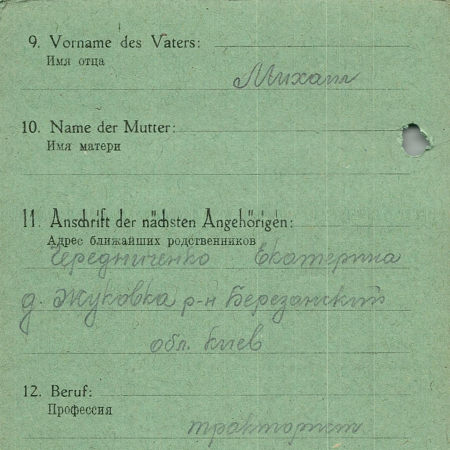 9. Vorname des Vaters:
Имя отца
Михаил
10. Name der Mutter:
Имя матери
11. Anschrift der nächsten Angehörigen:
Адрес ближайших родственников
Чередниченко Екатерина
д. Жуковка р-н Березанский
обл. Киев
12. Beruf:
Профессия
тракторист